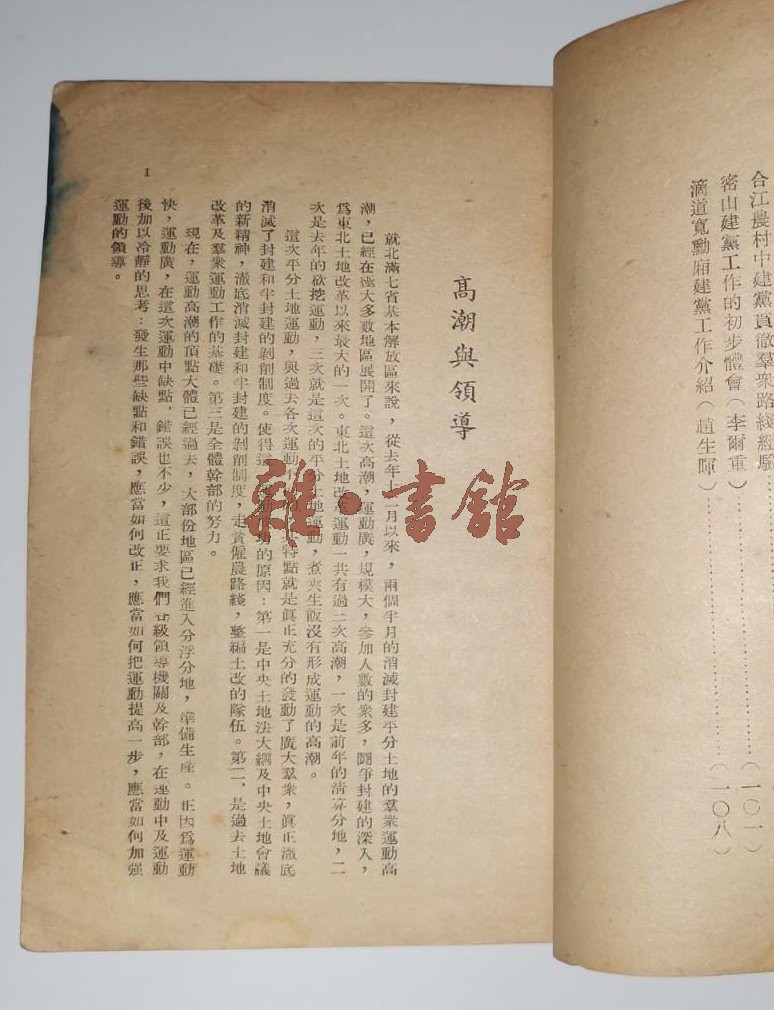 合江農村中建黨貫徹羣衆路綫經驗……(一〇一)
密山建黨工作的初步體會(李爾重)……(一〇八)
滴道寬勳廂建黨工作介紹(趙生暉)
高潮與領導
就北滿七省基本解放區來說,從去年十二月以來,兩個半月的消滅封建平分土地的羣衆運動高
潮,已經在極大多數地區展開了。這次高潮,運動廣,規模大,參加人數的衆多,鬪爭封建的深入,
爲東北土地改革以來最大的一次。東北土地改革運動一共有過三次高潮,一次是前年的清算分地,二
次是去年的砍挖運動,三次就是這次的平分土地運動,煮夾生飯沒有形成運動的高潮。
這次平分土地運動,與過去各次運動 特點就是眞正充分的發動了廣大羣衆,眞正澈底
消滅了封建和半封建的剝削制度。使得這 的原因:第一是中央土地法大綱及中央土地會議
的新精神,澈底消滅封建和半封建的剝削制度,走貧僱農路綫,整編土改的隊伍。第二、是過去土地
改革及羣衆運動工作的基礎。第三是全體幹部的努力。
現在,運動高潮的頂點大體已經過去,大部份地區已經進入分浮分地,準備生產。正因爲運動
快,運動廣,在這次運動中缺點、錯誤也不少,這正要求我們各級領導機關及幹部,在運動中及運動
後加以冷靜的思考:發生那些缺點和錯誤,應當如何改正,應當如何把運動提高一步,應當如何加强
運動的領導。
1
雜·書館